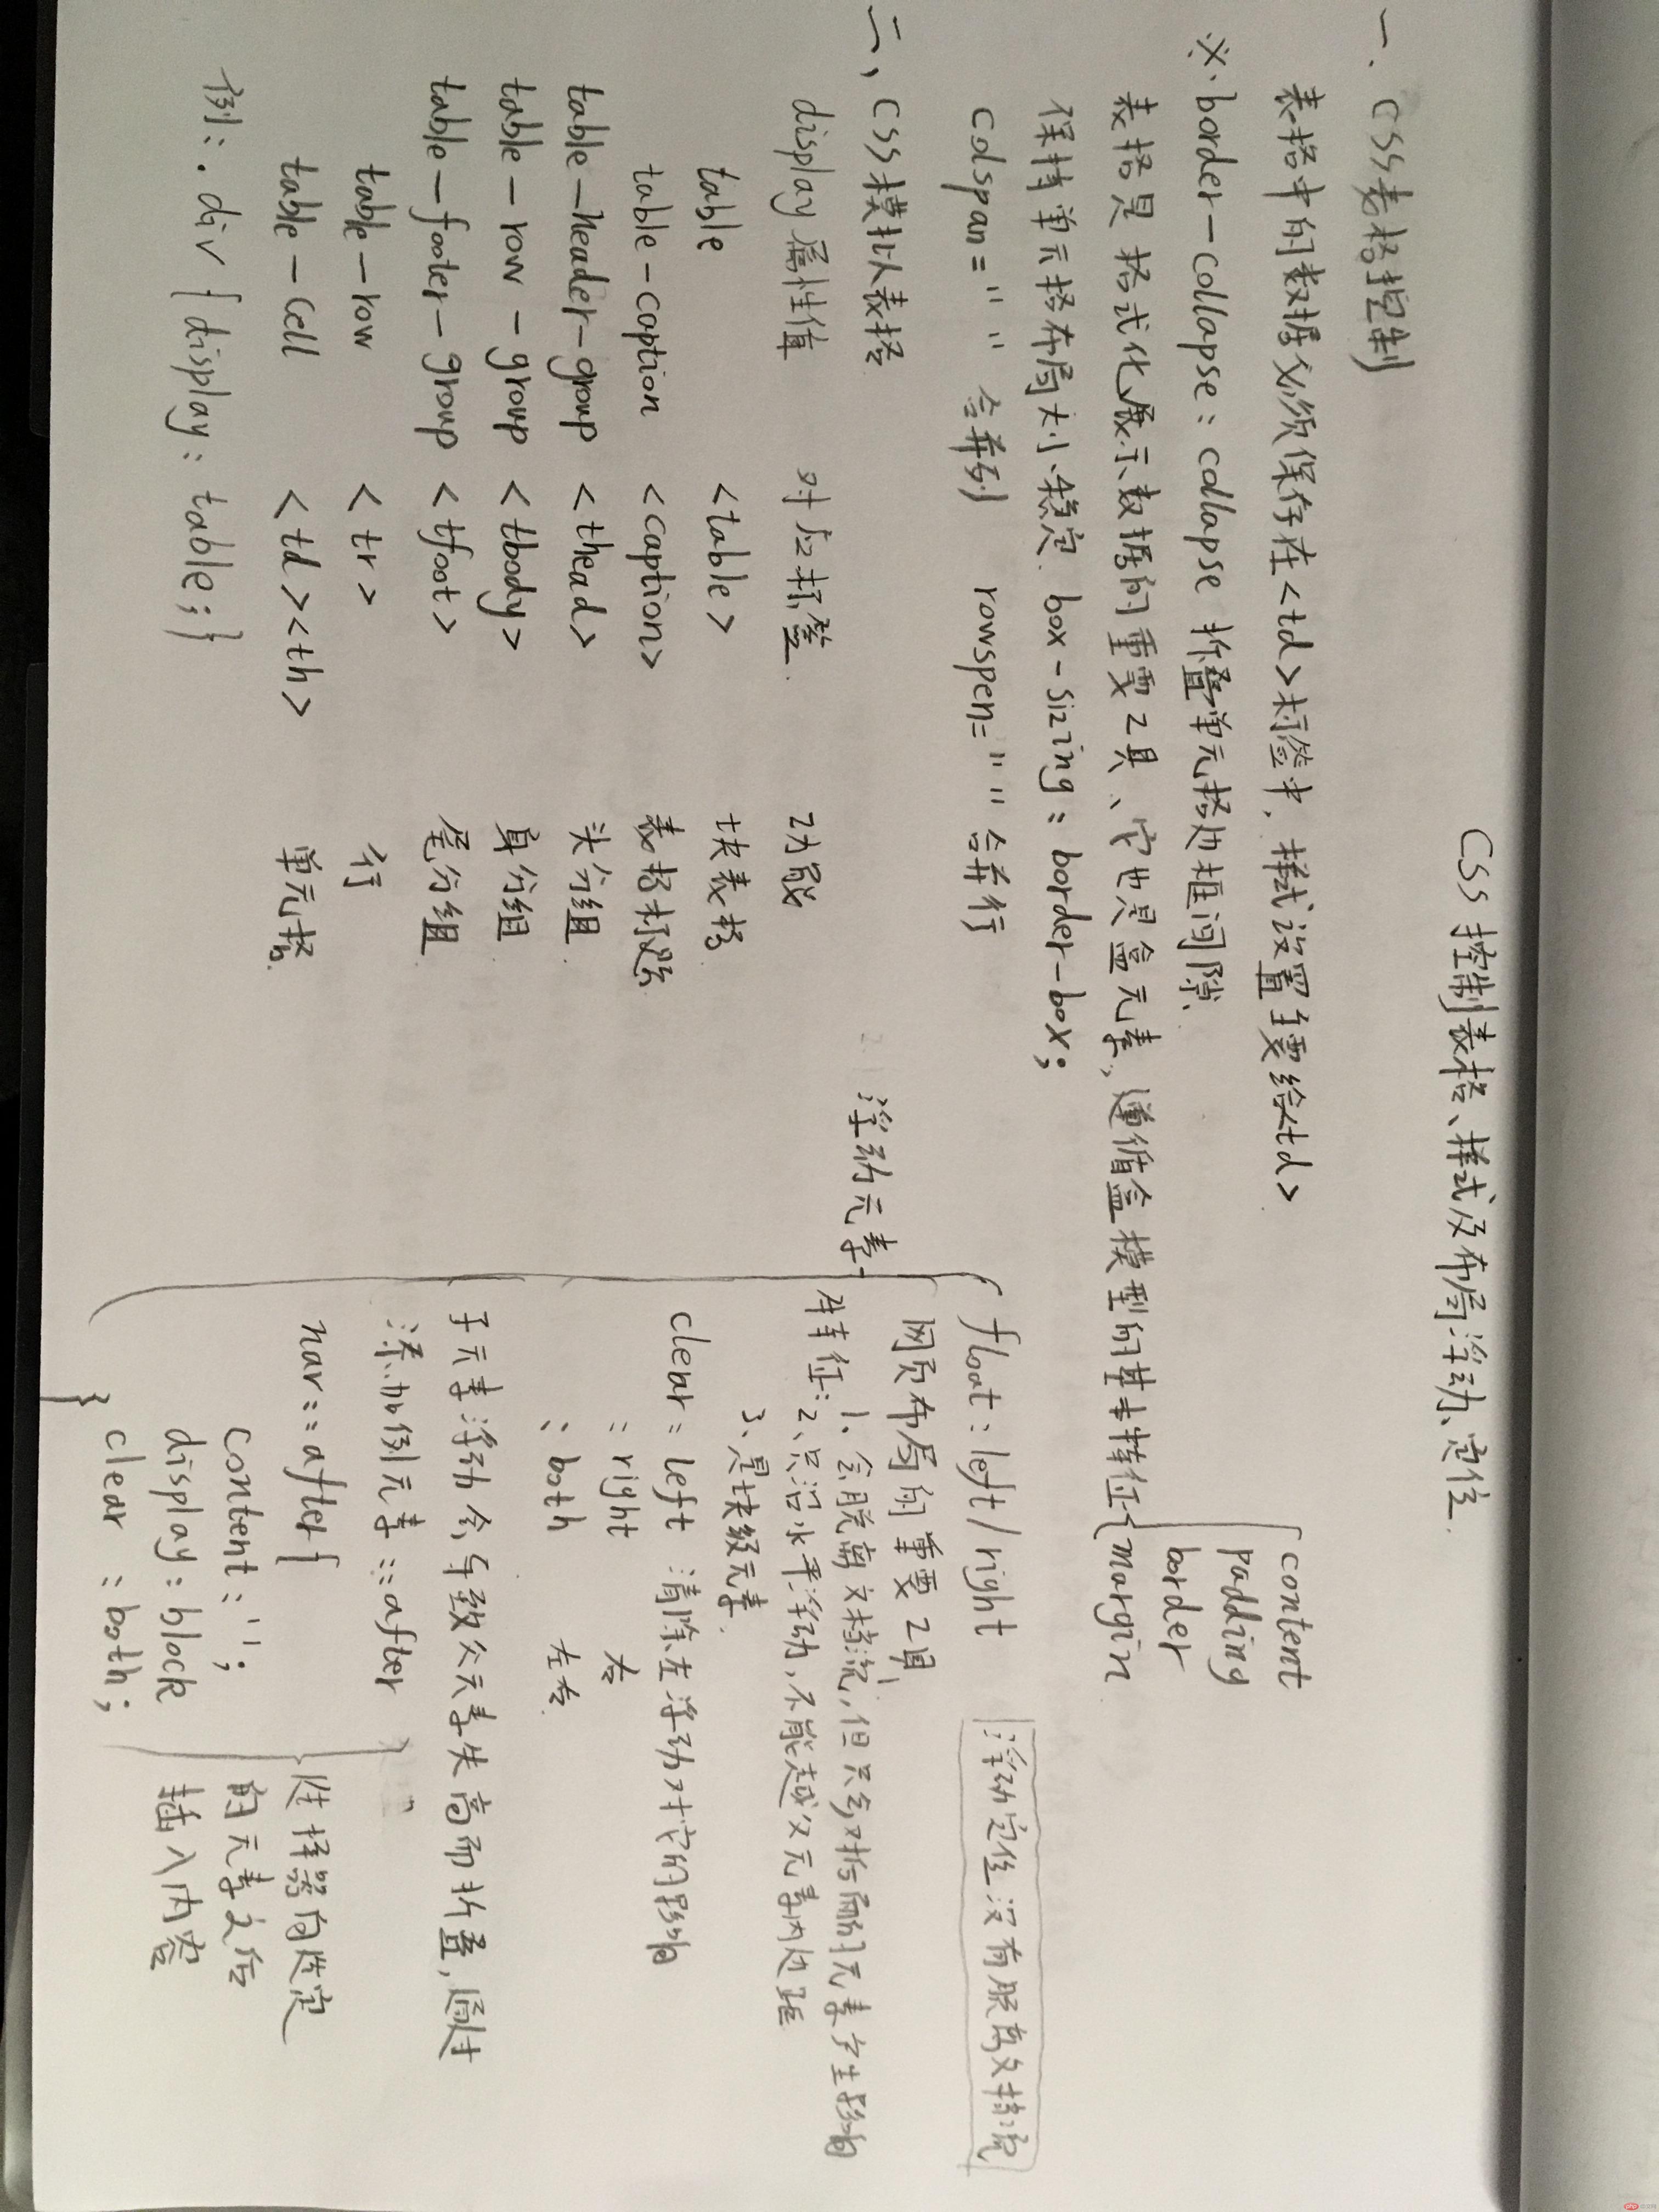 CSS控制表格、样式及布局浮动、定位.
一. CSS表格控制
表格中的数据必须保存在<td>标签中, 样式设置主要给<td>
※. border-collapse: collapse 折叠单元格边框间隙
表格是格式化展示数据的重要工具、它也是盒元素, 遵循盒模型的基本特征{ content
padding
border
margin
保持单元格布局大小稳定. box-sizing: border-box;
colspan=" " 合并列 rowspen=" " 合并行
二、CSS模拟表格
display属性值 对应标签. 功能
table <table> 块表格
table-caption <caption> 表格标题
table-header-group <thead> 头分组
table-row-group <tbody> 身分组
table-footer-group <tfoot> 尾分组
table-row <tr> 行
table-cell <td><th> 单元格.
例: .div{display: table;}
浮动元素
float: left/right
浮动定位没有脱离文档流
网页布局的重要工具
特征: 1. 会脱离文档流, 但只会对后面的元素产生影响
2、只沿水平浮动, 不能越过父元素内边距
3、是块级元素.
clear: left 清除左浮动对它的影响
: right 右
: both 左右.
子元素浮动会导致父元素失高而折叠, 通过
添加例元素::after
nav::after{
content: '';
display: block
clear: both;
}
选择器向选定
的元素之后
插入内容
php